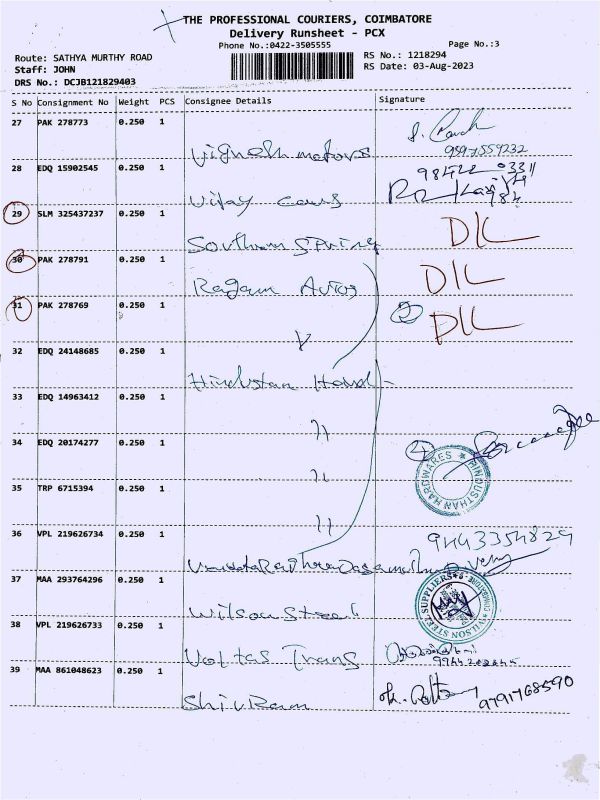 THE PROFESSIONAL COURIERS, COIMBATORE
Delivery Runsheet - PCX
Phone No.:0422-3505555
Page No.:3
Route: SATHYA MURTHY ROAD
RS No.: 1218294
Staff: JOHN
RS Date: 03-Aug-2023
DRS No.: DCJB121829403
S No Consignment No Weight PCS Consignee Details Signature
27 PAK 278773 0.250 1
Vignesh motors
9597559232
28 EDQ 15902545 0.250 1
Vijay
29 SLM 325437237 0.250 1
Southern Spring
D/L
30 PAK 278791 0.250 1
Ragam Autos
D/L
31 PAK 278769 0.250 1
2 D/L
32 EDQ 24148685 0.250 1
Hindustan Hard
33 EDQ 14963412 0.250 1
"
34 EDQ 20174277 0.250 1
"
4
HINDUSTHAN HARDWARES
35 TRP 6715394 0.250 1
"
36 VPL 219626734 0.250 1
9443354829
37 MAA 293764296 0.250 1
Wilson Steel
WILSON STEEL SUPPLIERS
38 VPL 219626733 0.250 1
Voltas Trans
39 MAA 861048623 0.250 1
Shivram
9791768590